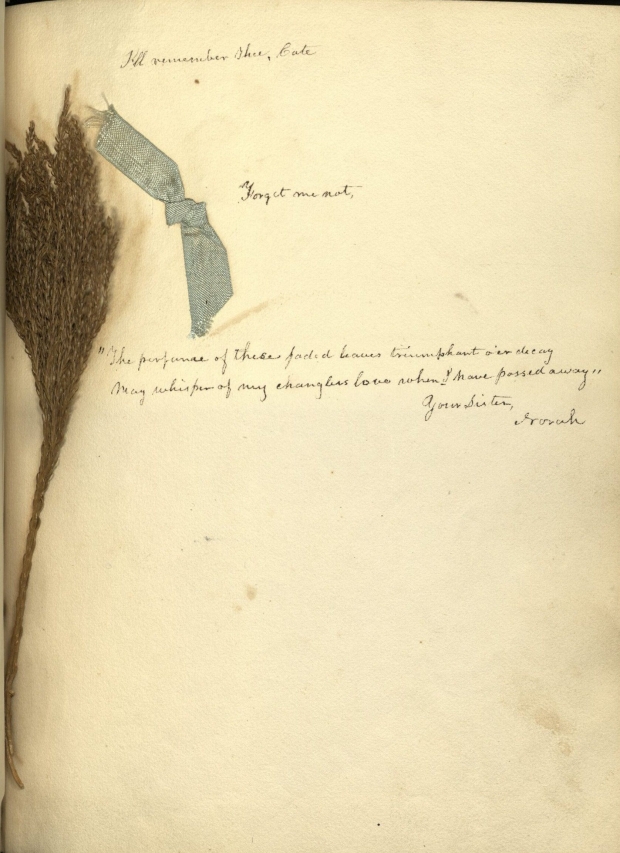 I'll remember Thee, Cate
Forget me not,
"The perfume of these faded leaves triumphant o'er decay
May whisper of my changless love when I have passed away"
Your Sister,
Norah